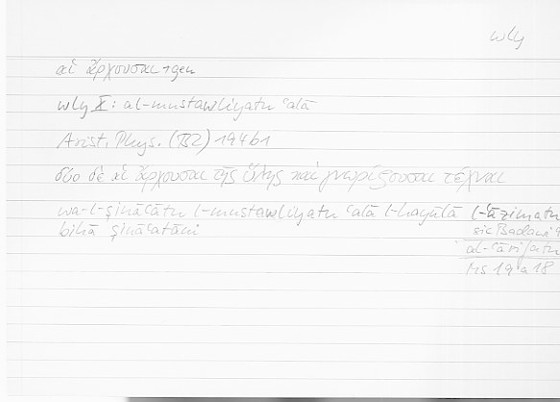 wly
αἱ ἄρχουσαι +gen
wly X: al-mustawliyatu ʿalā
Arist. Phys. (B2) 194b1
δύο δὲ αἱ ἄρχουσαι τῆς ὕλης καὶ γνωρίζουσαι τέχναι
wa-l-ṣināʿatu l-mustawliyatu ʿalā l-hayūlā l-ʿāzimatu
bihā ṣināʿatāni sic Badawī
al-ʿārifatu
MS 19 a 18